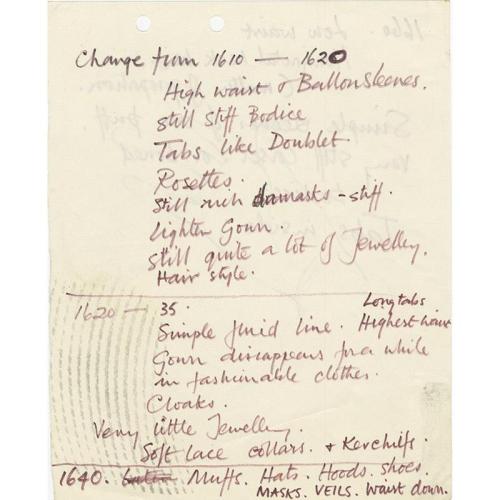 Change from 1610 — 1620
High waist & Ballonsleeves.
Still Stiff Bodice
Tabs like Doublet.
Rosettes.
Still rich damasks - stiff.
Lighter Gown.
Still quite a lot of Jewellery.
Hair style.
1620 — 35.
Long tabs
Simple fluid line. Highest waist
Gown disappears for a while
in fashionable clothes.
Cloaks.
Very little Jewellery.
Soft lace collars. & Kerchiefs.
1640. Muffs. Hats. Hoods. Shoes.
MASKS. VEILS. Waist down.